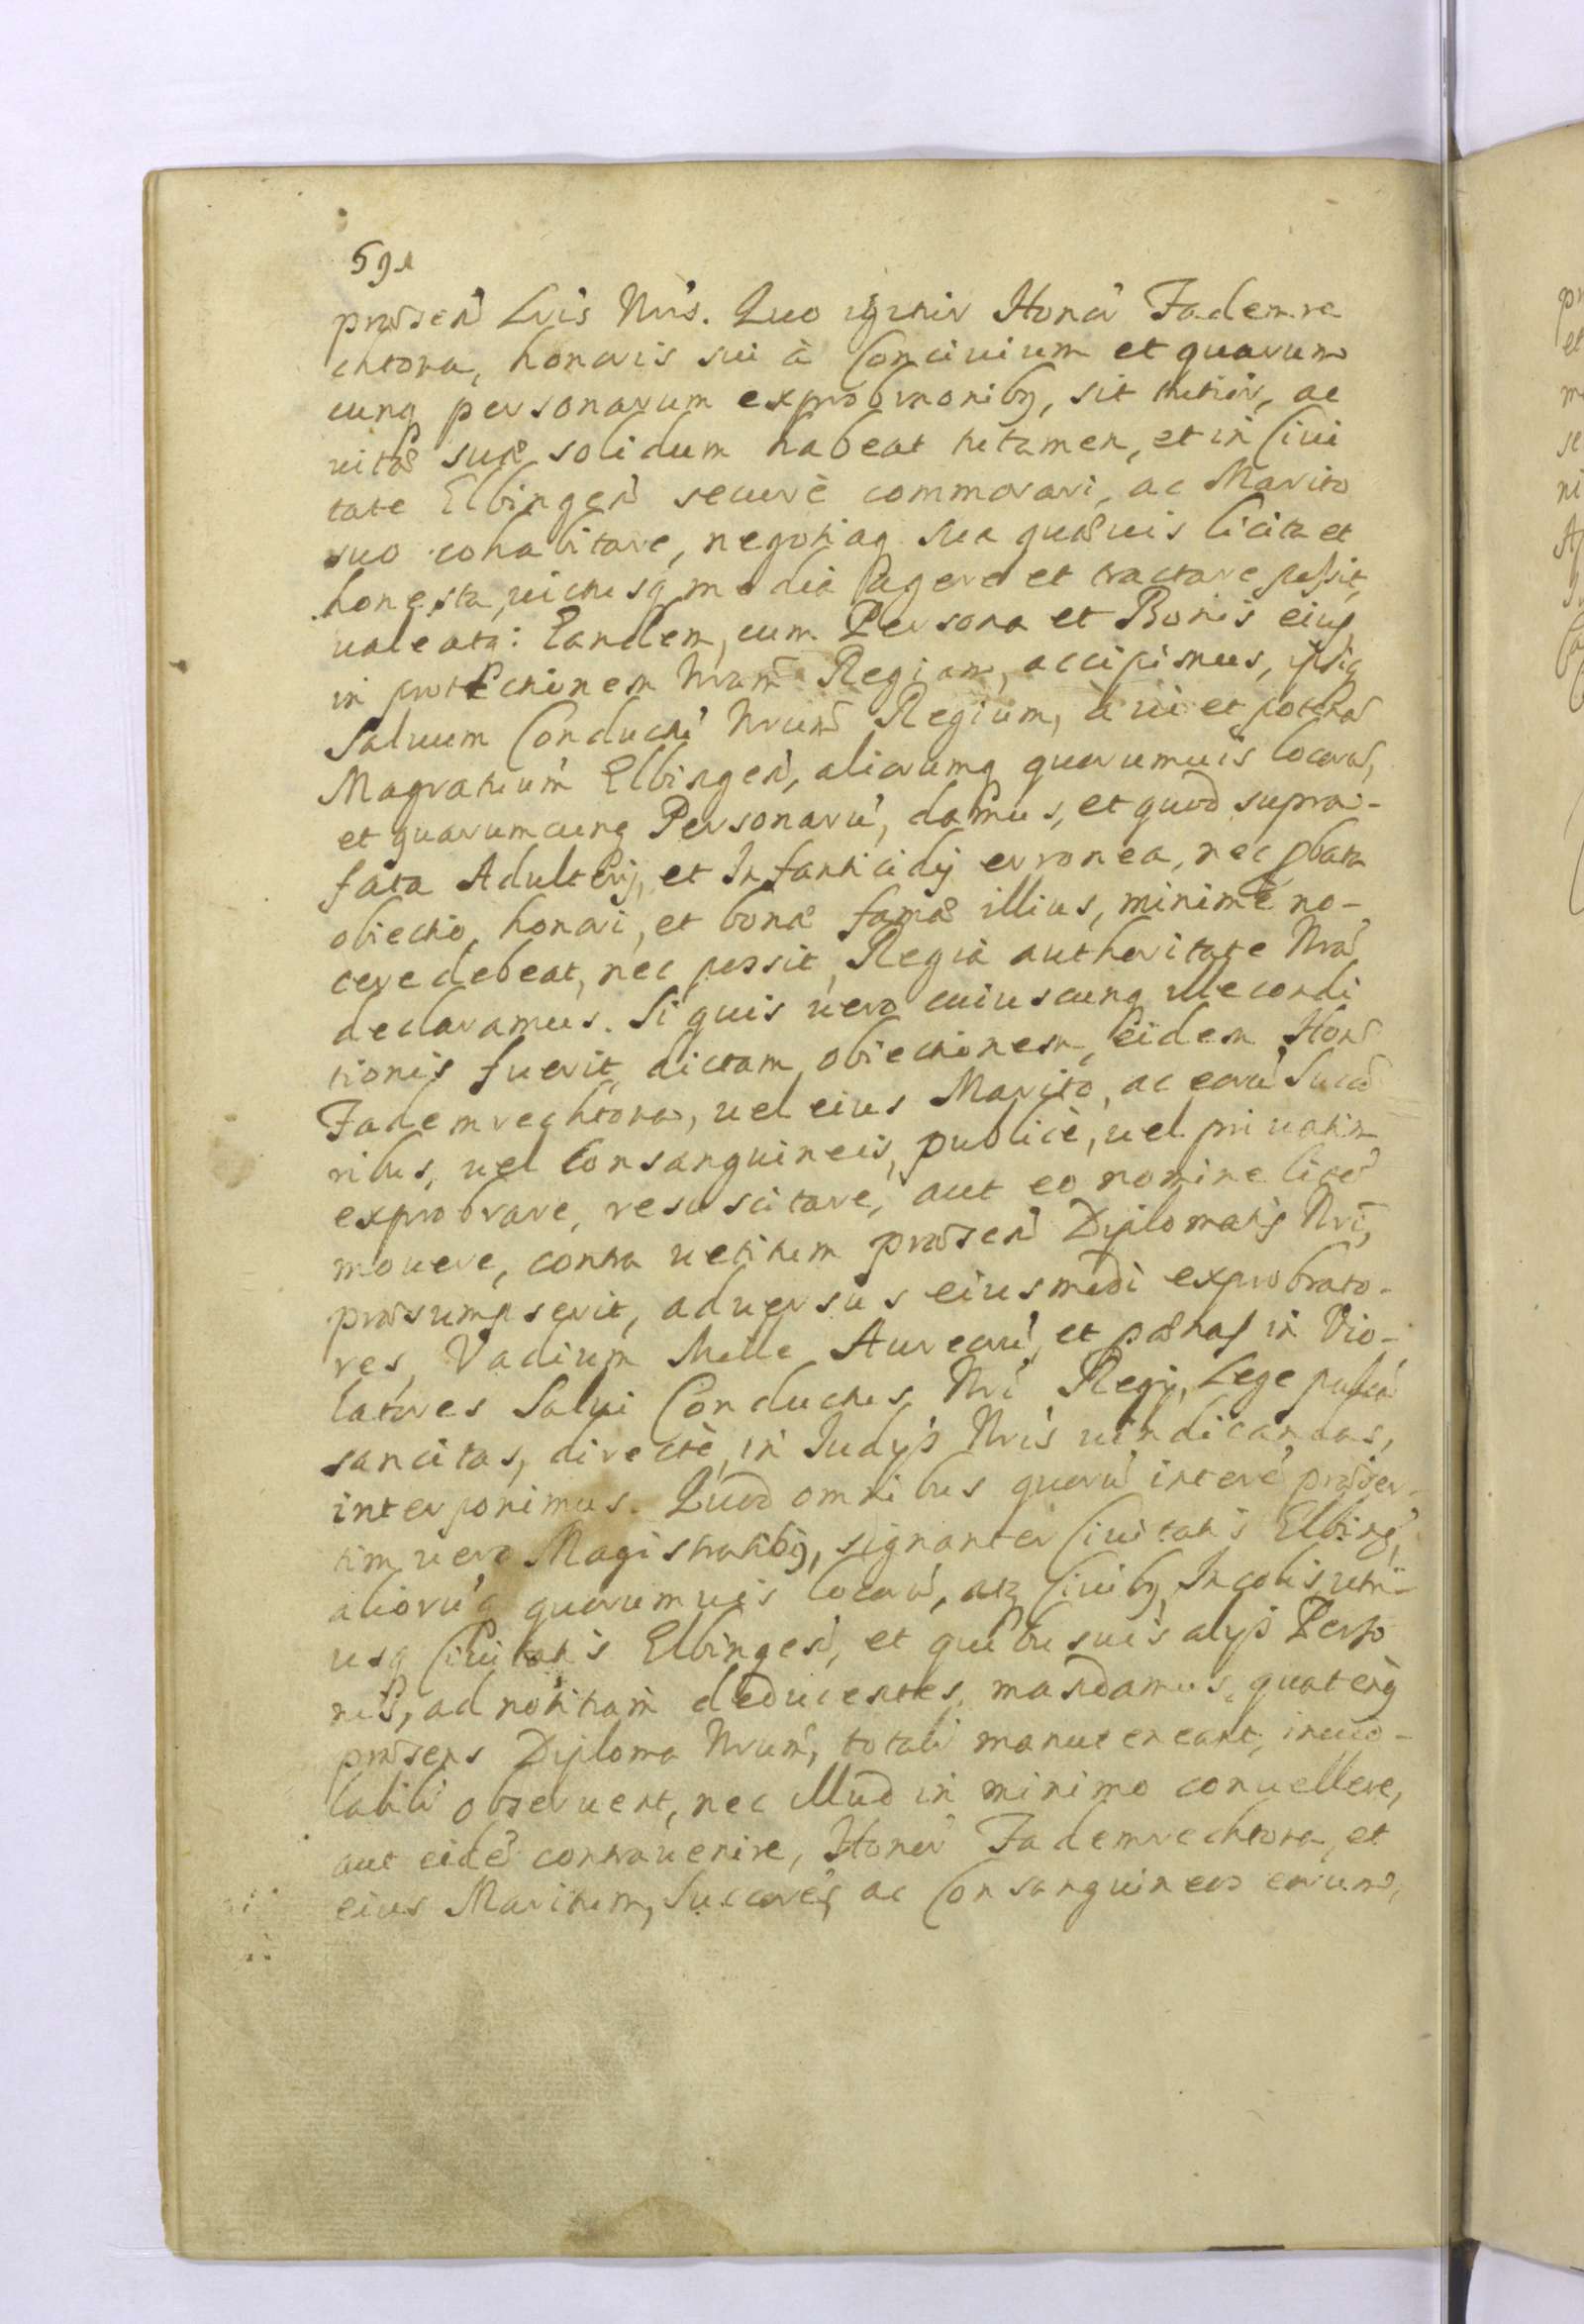 591
præsen Lris Nris. Quo igitur Hona Fademre
chtona, honoris sui à Conciuium et quarum
cunq personarum exprobrnoniby, sit tutior, ac
uitæ suæ solidum habeat tutamen, et in Ciui
tate Elbingen securè commorari, ac Marito
suo cohabitare, negotiaq sua quæuis licita et
honesta, uictusq media agere et tractare possit,
ualeatq: Eandem, cum Persona et Bonis eius
in protectionem Nram Regiam, accipimus, ipsiq
Saluum Conductu Nrum Regium, à ui et potestas
Magratuum Elbingen, aliorumq quorumuis locorum,
et quarumcunq Personaru, damus, et quod supra-
fata Adulterij, et Infanticidij erronea, nec pbata
obiectio, honori, et bonæ famæ illius, minimè no-
cere debeat, nec possit, Regià authoritate Nra
declaramus. Si quis uero cuiuscunq ille condi
tionis fuerit, dictam obiectionem, eidem Hon
Fademrechtona, uel eius Marito, ac eoru Succo
ribus, uel Consanguineis, publicè, uel priuatim
exprobrare, resuscitare, aut eo nomine lite
mouere, contra uetitum præsen Diplomatis Nri,
præsumpserit, aduersus eiusmodi exprobrato-
res, Vadium Mille Aureoru, et pœnas in Vio-
latores Salui Conductus Nri Regij, Lege publica
sancitas, directè, in Iudijs Nris uindicandas,
interponimus. Quod omnibus quoru intere præser-
tim uero Magistratiby, signanter Ciuitatis Elbing,
alioruq quorumuis locoru, atq Ciuiby, Incolis utri-
usq Ciuitatis Elbingen, et quibusuis alijs Perso
nis, ad notitiam deducentes, mandamus, quateny
præsens Diploma Nrum, totali manuteneant, inuio-
labili obseruent, nec illud in minimo conuellere,
aut eide contrauenire, Hona Fademrechtona, et
eius Maritum, Succores, ac Consanguineos eorum,